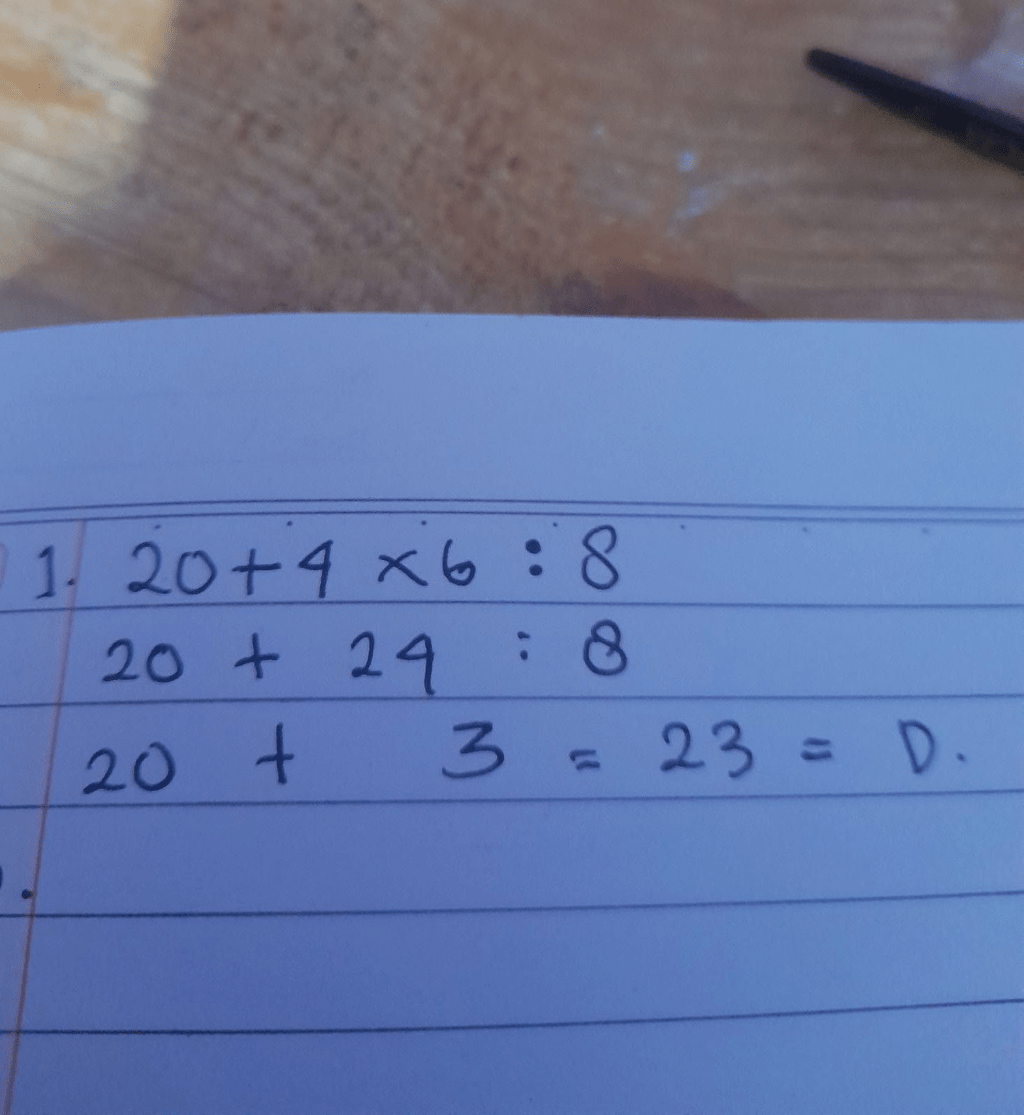 1. 20+4 ×6 : 8
20 + 24 : 8
20 + 3 = 23 = D.